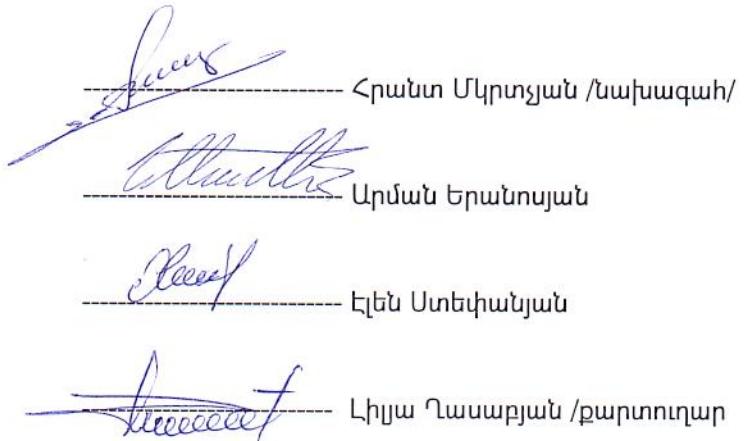 Հրանտ Մկրտչյան /նախագահ/
Արման Երանոսյան
Էլեն Ստեփանյան
Լիլյա Ղասաբյան /քարտուղար